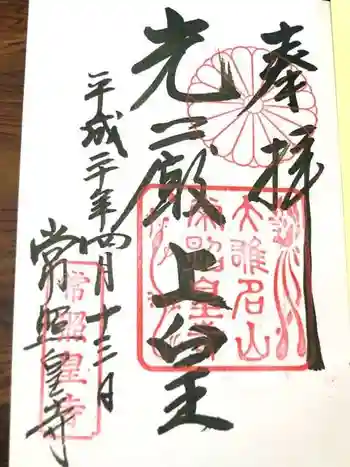 奉拝
光厳上皇
大雄名山
常照皇寺
平成二十年四月十三日
常照皇寺
常照皇寺